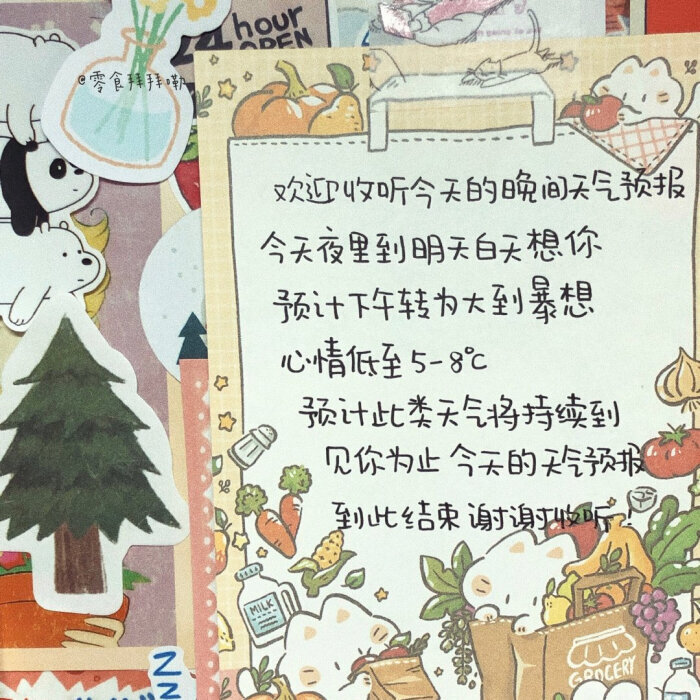 24 hour
OPEN
@零食拜拜嘞
欢迎收听今天的晚间天气预报
今天夜里到明天白天想你
预计下午转为大到暴想
心情低至5-8℃
预计此类天气将持续到
见你为止 今天的天气预报
到此结束 谢谢收听!
MILK
GROCERY